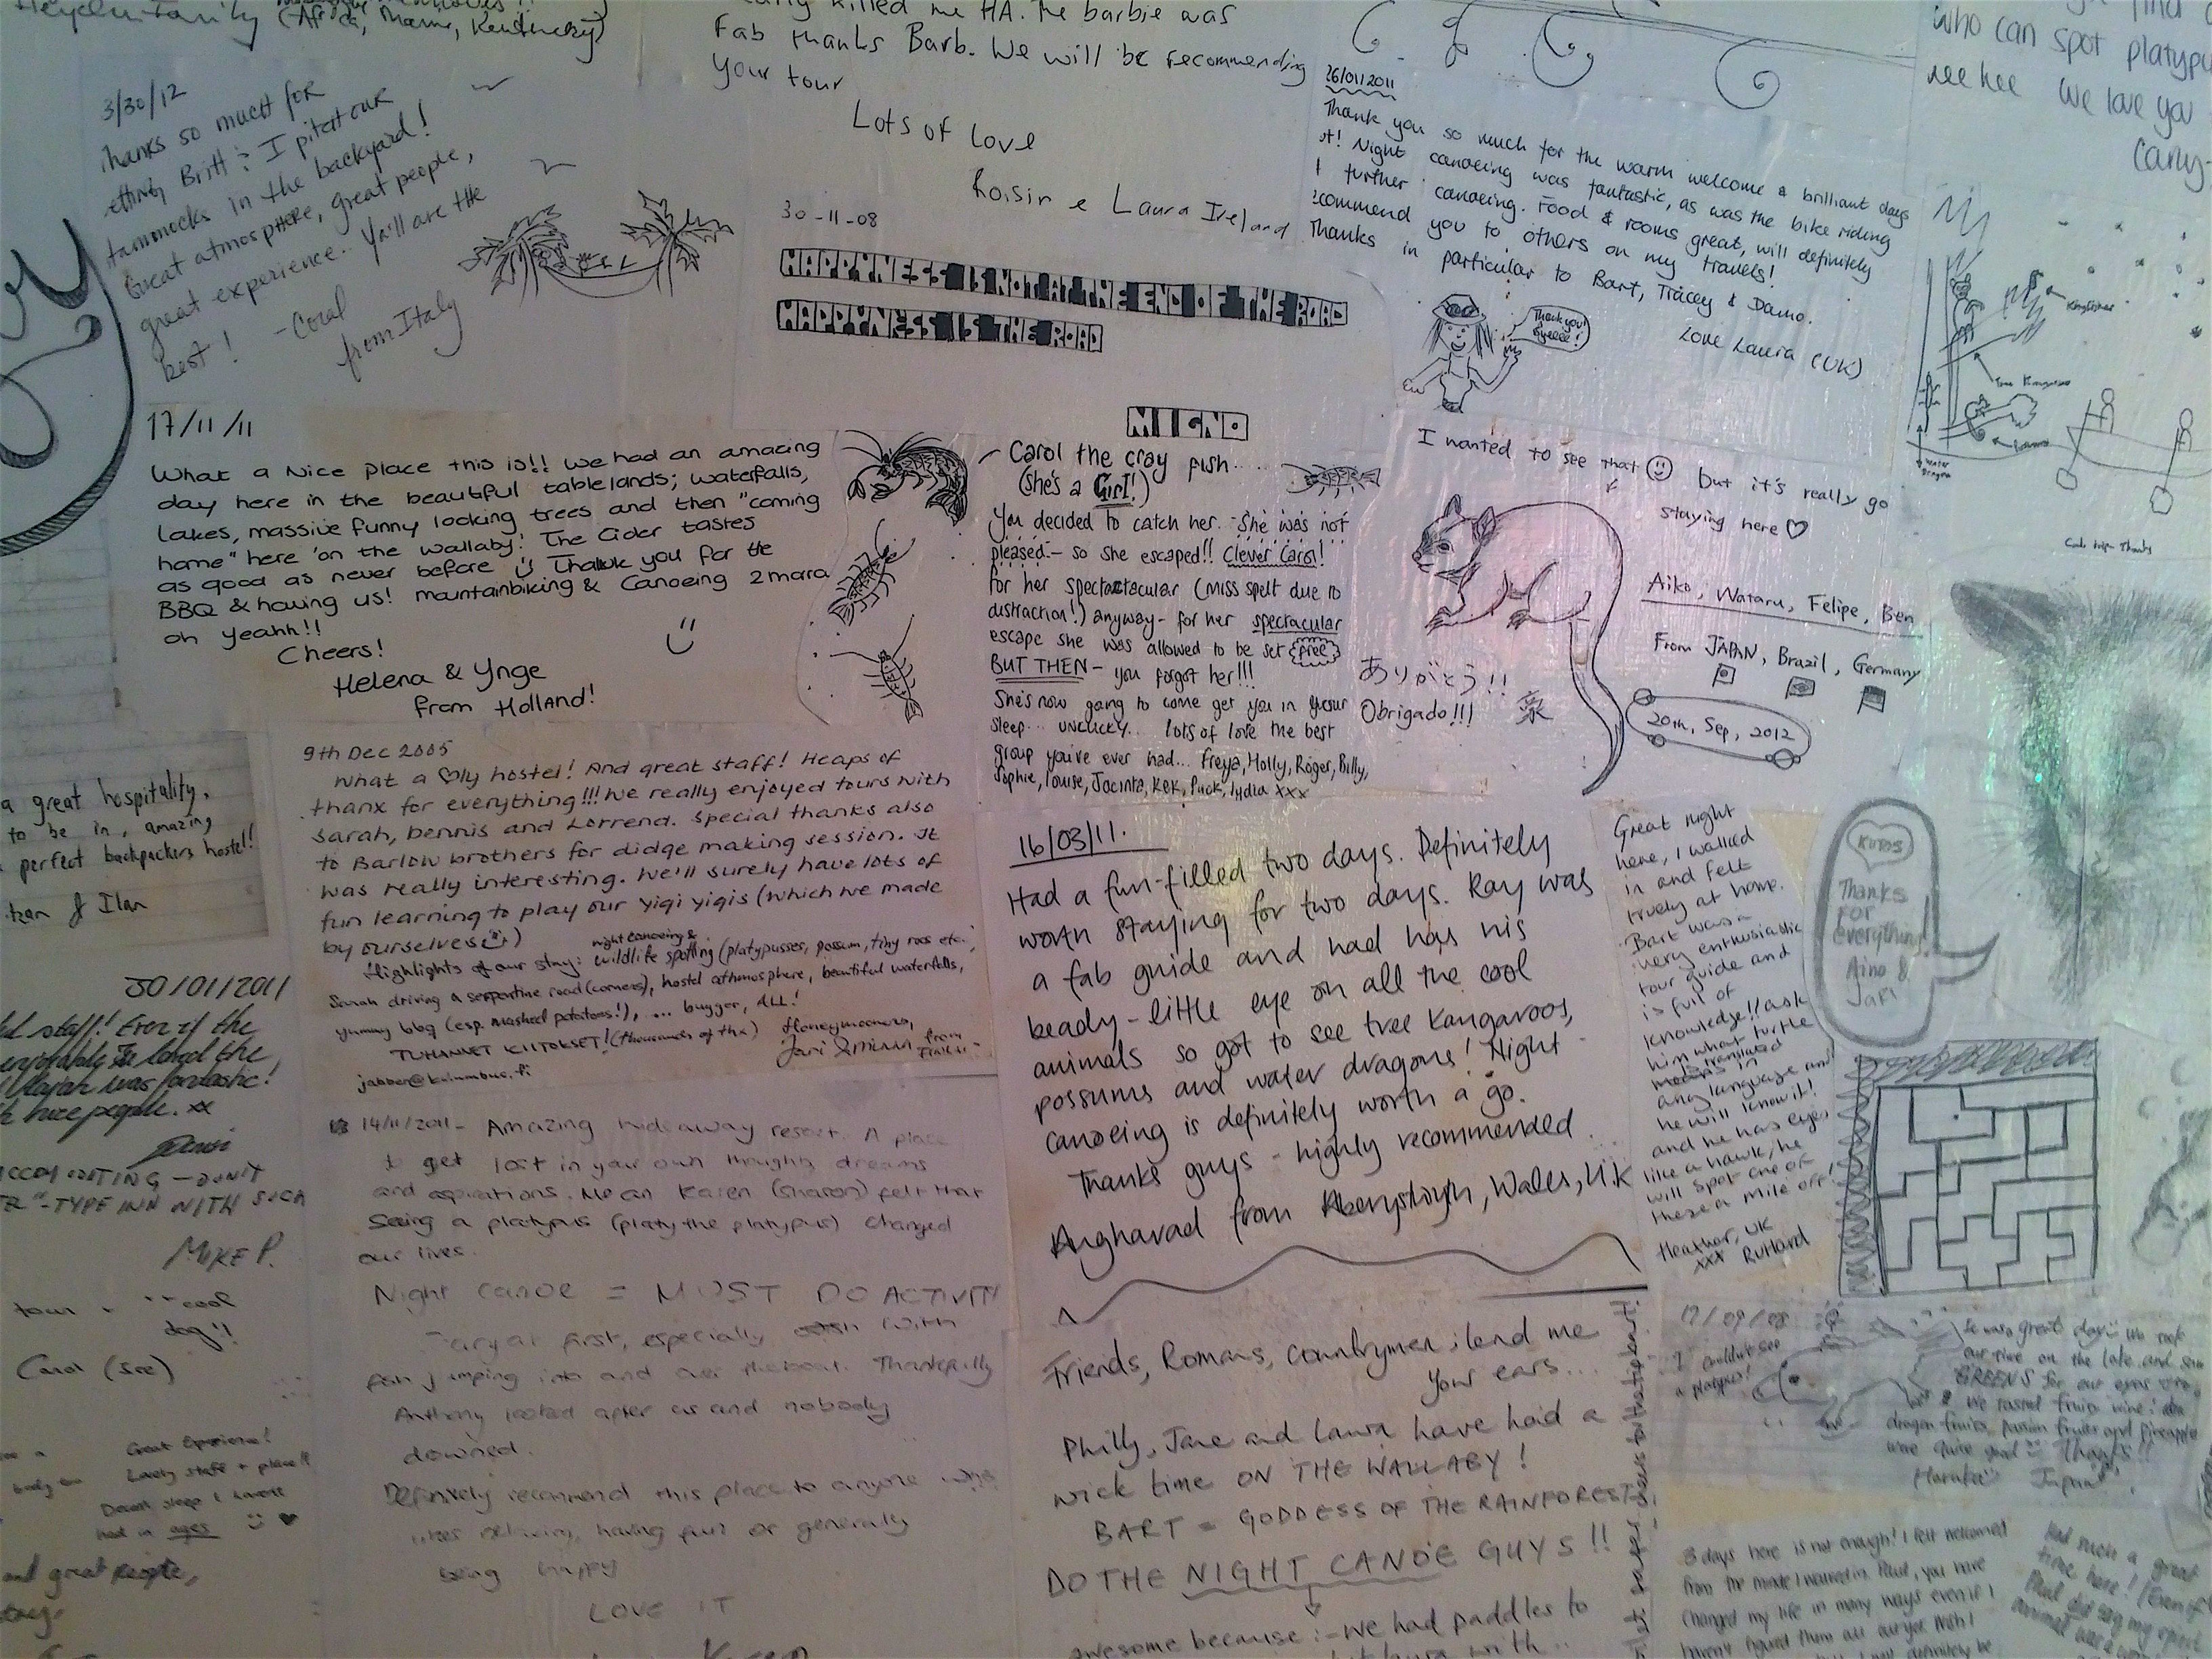 (Africa, Maine, Kentucky)
3/30/12
thanks so much for
Britt : I pitch our
hammocks in the backyard!
Great atmosphere, great people,
great experience. Ya'll are the
best! -Coral
from Italy
killed me HA. The barbie was
Fab thanks Barb. We will be recommending
your tour
Lots of love
Roisin e Laura Ireland
30-11-08
HAPPYNESS IS NOT AT THE END OF THE ROAD
HAPPYNESS IS THE ROAD
MIGNO
26/01/2011
Thank you so much for the warm welcome & brilliant days
Night canoeing was fantastic, as was the bike riding
further canoeing. Food & rooms great, will definitely
recommend you to others on my travels!
Thanks in particular to Bart, Tracey & Damo.
Love Laura (UK)
Thank you!
who can spot platypu
hee hee We love you
Kingfisher
Tree Kangaroo
Water Dragon
17/11/11
What a nice place this is!! We had an amazing
day here in the beautiful tablelands; waterfalls,
lakes, massive funny looking trees and then "coming
home" here 'on the wallaby'. The Cider tastes
as good as never before Thank you for the
BBQ & having us! mountainbiking & Canoeing 2mara
oh yeahh!!
Cheers!
Helena & Ynge
from Holland!
Carol the cray fish....
(she's a GIRL!)
You decided to catch her. She was not
pleased - so she escaped!! Clever Carol!
for her spectactacular (miss spelt due to
distraction!) anyway - for her spectacular
escape she was allowed to be set free
BUT THEN - you forgot her!!!
She's now going to come get you in your
sleep... unlucky.. lots of love the best
group you've ever had... Freya, Holly, Roger, Billy,
Sophie, Louise, Jacinta, Kek, Puck, Lydia xxx
I wanted to see that but it's really go
staying here ♡
Aiko, Wataru, Felipe, Ben
From JAPAN, Brazil, Germany
20th, Sep, 2012
ありがとう!!
Obrigado!!!
9th Dec 2005
What a ♡ly hostel! And great staff! Heaps of
thanx for everything!!! We really enjoyed tours with
Sarah, Dennis and Lorrend. Special thanks also
to Barlow brothers for didge making session. It
was really interesting. We'll surely have lots of
fun learning to play our yiqi yiqis (which we made
by ourselves)
Highlights of our stay: night canoeing & wildlife spotting (platypusses, possum, tiny roos etc.,
Sarah driving a serpentine road (corners), hostel athmosphere, beautiful waterfalls,
yummy bbq (esp. mashed potatoes!), ... bugger, ALL!
TUHANNET KIITOKSET! (thousands of thx) Honeymooners,
from
a great hospitality.
to be in, amazing
perfect backpackers hostel!
& Ilan
30/01/2011
staff! Even if the
loved the
was fantastic!
nice people. xx
MIKE P.
tour
cool
dog"!
Carol (see)
Great Experience!
Lovely staff + place!!
Decent sleep I havent
had in ages
and great people,
14/11/2011 - Amazing hideaway resort. A place
to get lost in your own thoughts dreams
and aspirations. Me an Karen (Sharon) felt that
Seeing a platypus (platy the platypus) changed
our lives.
Night canoe = MUST DO ACTIVITY
at first, especially with
fish jumping into and over the boat. Thankfully
Anthony looked after us and nobody
drowned.
Definitely recommend this place to anyone who
likes relaxing, having fun or generally
being happy
LOVE IT
16/03/11.
Had a fun-filled two days. Definitely
worth staying for two days. Ray was
a fab guide and had his
beady-little eye on all the cool
animals so got to see tree kangaroos,
possums and water dragons! Night
canoeing is definitely worth a go.
Thanks guys - highly recommended
Angharad from Aberystwyth, Wales, U.K
Friends, Romans, countrymen; lend me
your ears...
Philly, Jane and Laura have had a
wick time ON THE WALLABY!
BART = GODDESS OF THE RAINFOREST
DO THE NIGHT CANOE GUYS!!
awesome because :- we had paddles to
Great night
here, I walked
in and felt
truely at home.
Bart was a
very enthusiastic
tour guide and
is full of
knowledge!! ask
him what turtle
translated
means in
any language and
he will know it!
and he has eyes
like a hawk, he
will spot one of
these a mile off!
Heather, UK
xxx Rutland
KIITOS
Thanks
for
everything!
Aino &
Jari
17/09/08
I couldn't see
a platypus!
was great day
our time on the lake and saw
GREENS for our eyes
We tasted fruits wine!
dragon fruits, passion fruits and pineapple
were quite good Thanks!!
Haruka Japan
3 days here is not enough! I felt welcomed
from the minute I walked in. Paul, you have
changed my life in many ways even if I
haven't figured them all out yet. Wish I
definitely be
Had such a great
time here! (Even if
Paul did say my spirit
animal was a